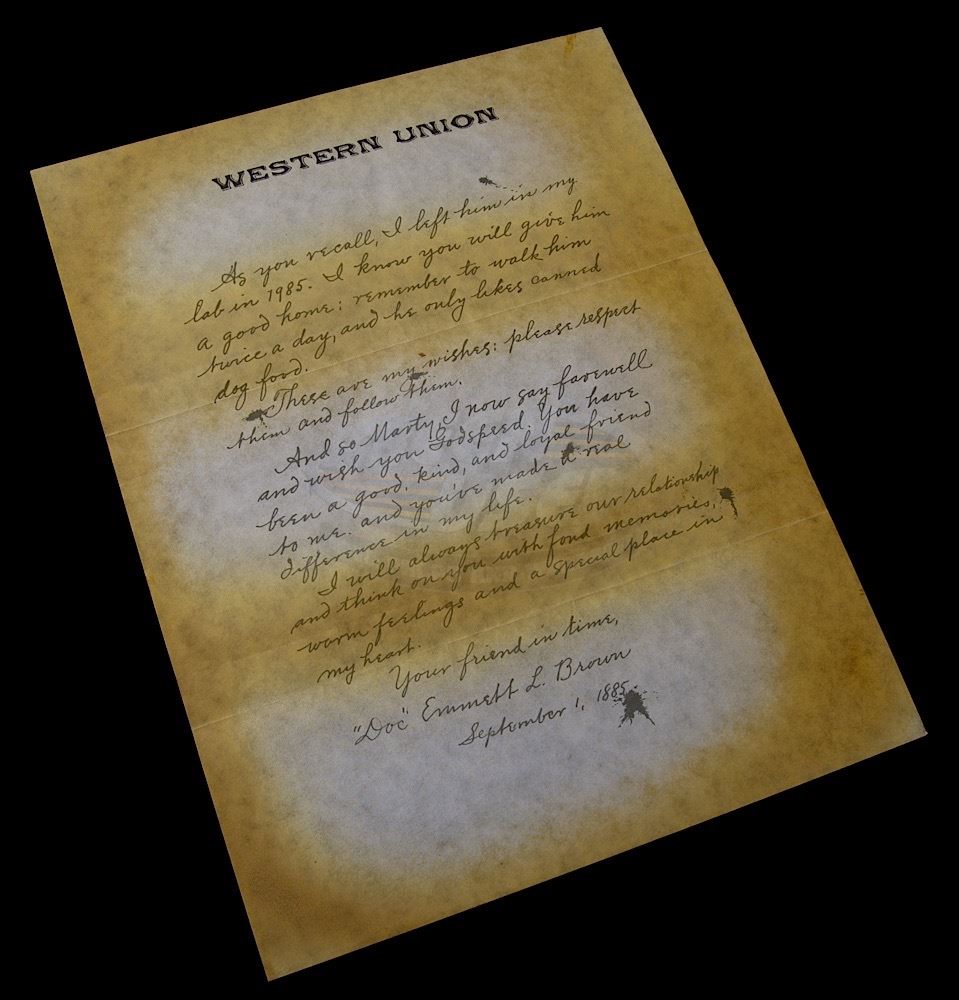 WESTERN UNION
As you recall, I left him in my
lab in 1985. I know you will give him
a good home; remember to walk him
twice a day, and he only likes canned
dog food.
These are my wishes; please respect
them and follow them.
And so Marty, I now say farewell
and wish you Godspeed. You have
been a good, kind, and loyal friend
to me. and you've made a real
difference in my life.
I will always treasure our relationship
and think on you with fond memories,
warm feelings and a special place in
my heart.
Your friend in time,
"Doc" Emmett L. Brown
September 1, 1885